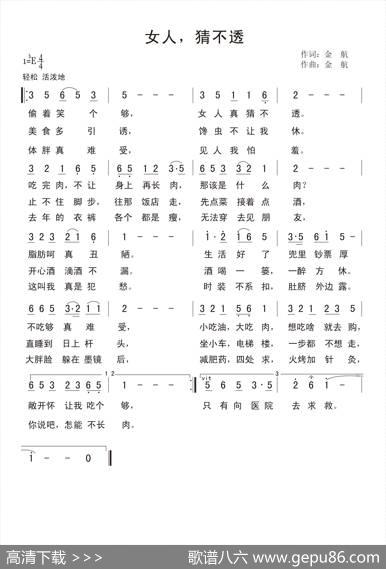 女人，猜不透
作词：金 航
作曲：金 航
1=♭E 4/4
轻松 活泼地
3 5 6 5 3 5 - - - 3 5 1 1 6 2 - - -
偷着笑 个 够， 女人真猜不 透。
美食多 引 诱， 馋虫不让我 休。
体胖真 难 受， 见人我怕 羞。
3 2 1 6 2 1 6 1 6 5 1 2 3·5 2 - - -
吃完肉，不让 身上 再长肉， 那该是 什 么 肉？
止不住脚步， 往那 饭店走， 先点菜 接着 点 酒，
去年的衣裤 各个 都是瘦， 无法穿 去见 朋 友，
3 2 3 2 1 6 1 - - -
脂肪呵 真 丑 陋。 生活好了 兜里 钞票 厚
开心酒 滴酒不 漏。 酒喝一篓， 一醉 方 休。
这叫我 真是犯 愁。 时装不系扣， 肚脐 外边 露。
不吃够 真 难 受， 小吃油，大吃肉， 想吃啥 就去 购，
直睡到 日上杆 头， 坐小车，电梯楼， 一步都 不想 走，
大胖脸 躲在墨镜 后， 减肥药，四处求， 火烤加 针 灸，
1 2 3
6 5 3 1 - - - 5 6 5 3·5 2 6 1 -
敞开怀 让我 吃个 够， 只有向医院 去求救。
你说吧，怎能 不长 肉。
1 - - 0
高清下载 >>>
歌谱八六 www.gepu86.com